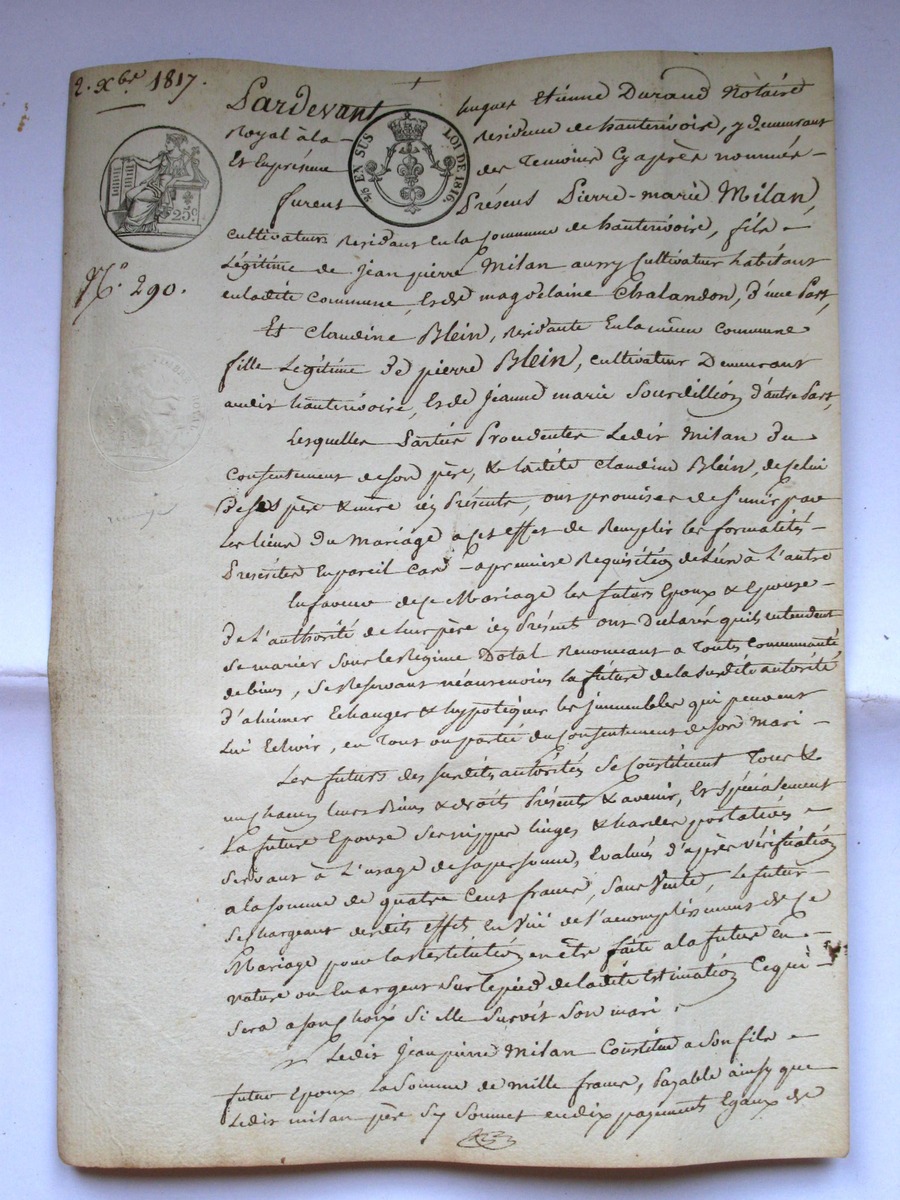 2. Xbre 1817.
Pardevant hugues Etienne Durand Notaire
Royal à la résidence de hauterivoire, y demeurant
Et En présence des Temoins Cy après nommés
LOI DE 1816.
EN SUS
25c
furent Présens Pierre-marie Milan,
cultivateur résidant en la Commune de hauterivoire, fils
Légitime de Jean pierre Milan aussy Cultivateur habitant
N° 290.
en ladite Commune, & de magdelaine Chalandon, d'une Part,
Et Claudine Blein, résidante En la même Commune
fille Légitime de pierre Blein, cultivateur Demeurant
audit hauterivoire, & de Jeanne marie Sourdillion d'autre Part,
Lesquelles Parties Procedentes Ledit Milan du
Consentement de son père, & ladite Claudine Blein, de Celui
de ses père & mère icy Présents, ont promises de s'unir par
Les liens du Mariage a cet effet de Remplir les formalités
Prescrites En pareil Cas a première Requisition de L'un à L'autre
En faveur de ce Mariage les futurs Epoux & Epouse
de L'authorité de leurs père icy Présents ont Déclaré qu'ils entendent
se marier sous le Régime Dotal Renonceant a Toute Communauté
de biens, se Réservant néanmoins la future de la susdite autorité
d'aliéner Echanger & hypotéquer les immeubles qui peuvent
Lui Echoir, en Tout ou partie du Consentement de son Mari
Les futurs des susdits autorités se Constituent Tous &
un chacun leurs Biens & droits Présents & avenir, Et spécialement
La future Epouse ses nippes linges & hardes portatives
servant à L'usage de sa personne, Evalués d'après vérification
a la somme de quatre Cent francs, sans Vente, le futur
se Chargeant desdits effets en Vüe de l'acomplissement de ce
Mariage pour la restitution en être faite a la future en
nature ou En argent sur le pied de ladite Estimation Ce qui
sera a son Choix si Elle survit son mari.
Ledit Jean pierre Milan Constitue a son fils
futur Epoux La somme de mille francs, payable ainsy que
Ledit milan père s'y soumet en dix payements Egaux de